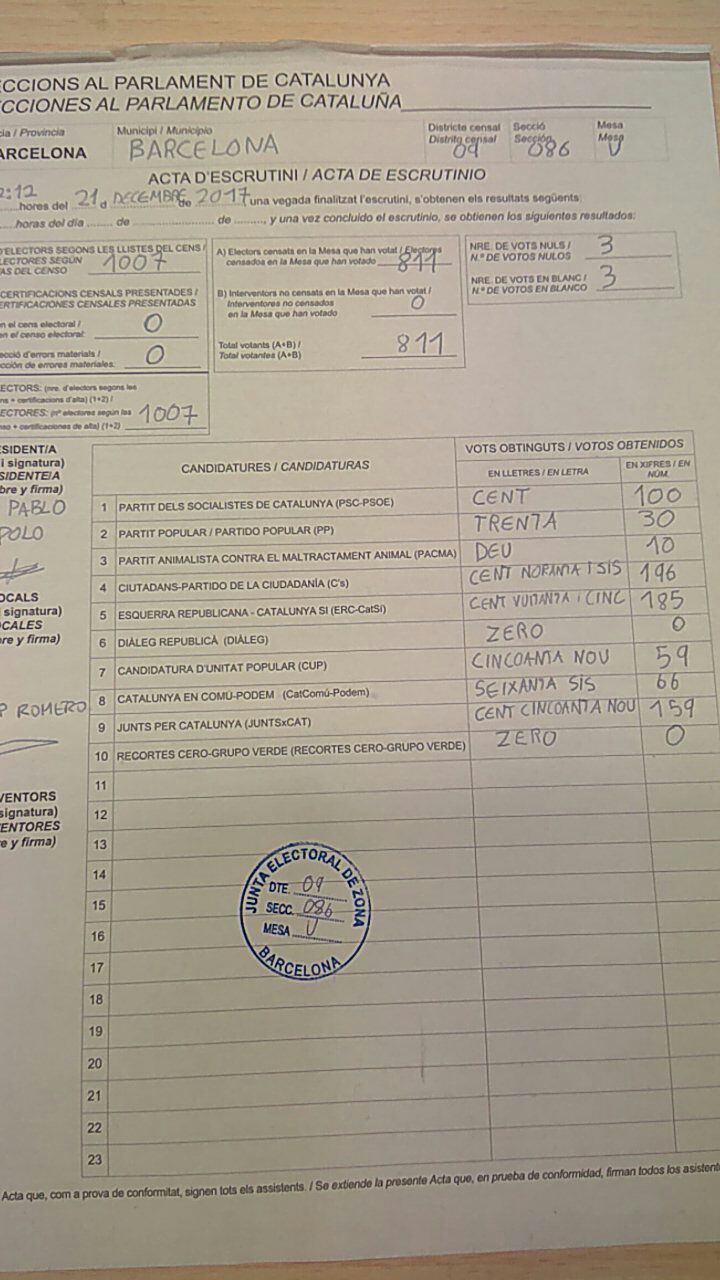 ECCIONS AL PARLAMENT DE CATALUNYA
ECCIONES AL PARLAMENTO DE CATALUÑA
cia / Provincia Municipi / Municipio Districte censal Secció Mesa
Distrito censal Sección Mesa
ARCELONA BARCELONA 09 086 U
ACTA D'ESCRUTINI / ACTA DE ESCRUTINIO
2:12 hores del 21 d DECEMBRE de 2017 una vegada finalitzat l'escrutini, s'obtenen els resultats següents:
horas del día de de , y una vez concluido el escrutinio, se obtienen los siguientes resultados:
D'ELECTORS SEGONS LES LLISTES DEL CENS /
LECTORES SEGÚN
AS DEL CENSO 1007
CERTIFICACIONS CENSALS PRESENTADES /
ERTIFICACIONES CENSALES PRESENTADAS
en el cens electoral /
en el censo electoral: 0
ecció d'errors materials /
cción de errores materiales: 0
ECTORS: (nre. d'electors segons les
ns + certificacions d'alta) (1+2) /
ECTORES: (nº electores según las
nso + certificaciones de alta) (1+2) 1007
A) Electors censats en la Mesa que han votat / Electores
censados en la Mesa que han votado 811
B) Interventors no censats en la Mesa que han votat /
Interventores no censados
en la Mesa que han votado 0
Total votants (A+B) /
Total votantes (A+B) 811
NRE. DE VOTS NULS /
N.º DE VOTOS NULOS 3
NRE. DE VOTS EN BLANC /
N.º DE VOTOS EN BLANCO 3
ESIDENT/A
i signatura)
SIDENTE/A
bre y firma)
PABLO
POLO
OCALS
signatura)
OCALES
re y firma)
P ROMERO
VENTORS
signatura)
VENTORES
e y firma)
CANDIDATURES / CANDIDATURAS VOTS OBTINGUTS / VOTOS OBTENIDOS
EN LLETRES / EN LETRA EN XIFRES / EN NÚM.
1 PARTIT DELS SOCIALISTES DE CATALUNYA (PSC-PSOE) CENT 100
2 PARTIT POPULAR / PARTIDO POPULAR (PP) TRENTA 30
3 PARTIT ANIMALISTA CONTRA EL MALTRACTAMENT ANIMAL (PACMA) DEU 10
4 CIUTADANS-PARTIDO DE LA CIUDADANÍA (C's) CENT NORANTA I SIS 196
5 ESQUERRA REPUBLICANA - CATALUNYA SI (ERC-CatSí) CENT VUITANTA I CINC 185
6 DIÀLEG REPUBLICÀ (DIÀLEG) ZERO 0
7 CANDIDATURA D'UNITAT POPULAR (CUP) CINCOANTA NOU 59
8 CATALUNYA EN COMÚ-PODEM (CatComú-Podem) SEIXANTA SIS 66
9 JUNTS PER CATALUNYA (JUNTSxCAT) CENT CINCOANTA NOU 159
10 RECORTES CERO-GRUPO VERDE (RECORTES CERO-GRUPO VERDE) ZERO 0
11
12
13
14
15
16
17
18
19
20
21
22
23
JUNTA ELECTORAL DE ZONA
DTE. 09
SECC. 086
MESA U
BARCELONA
Acta que, com a prova de conformitat, signen tots els assistents. / Se extiende la presente Acta que, en prueba de conformidad, firman todos los asistent